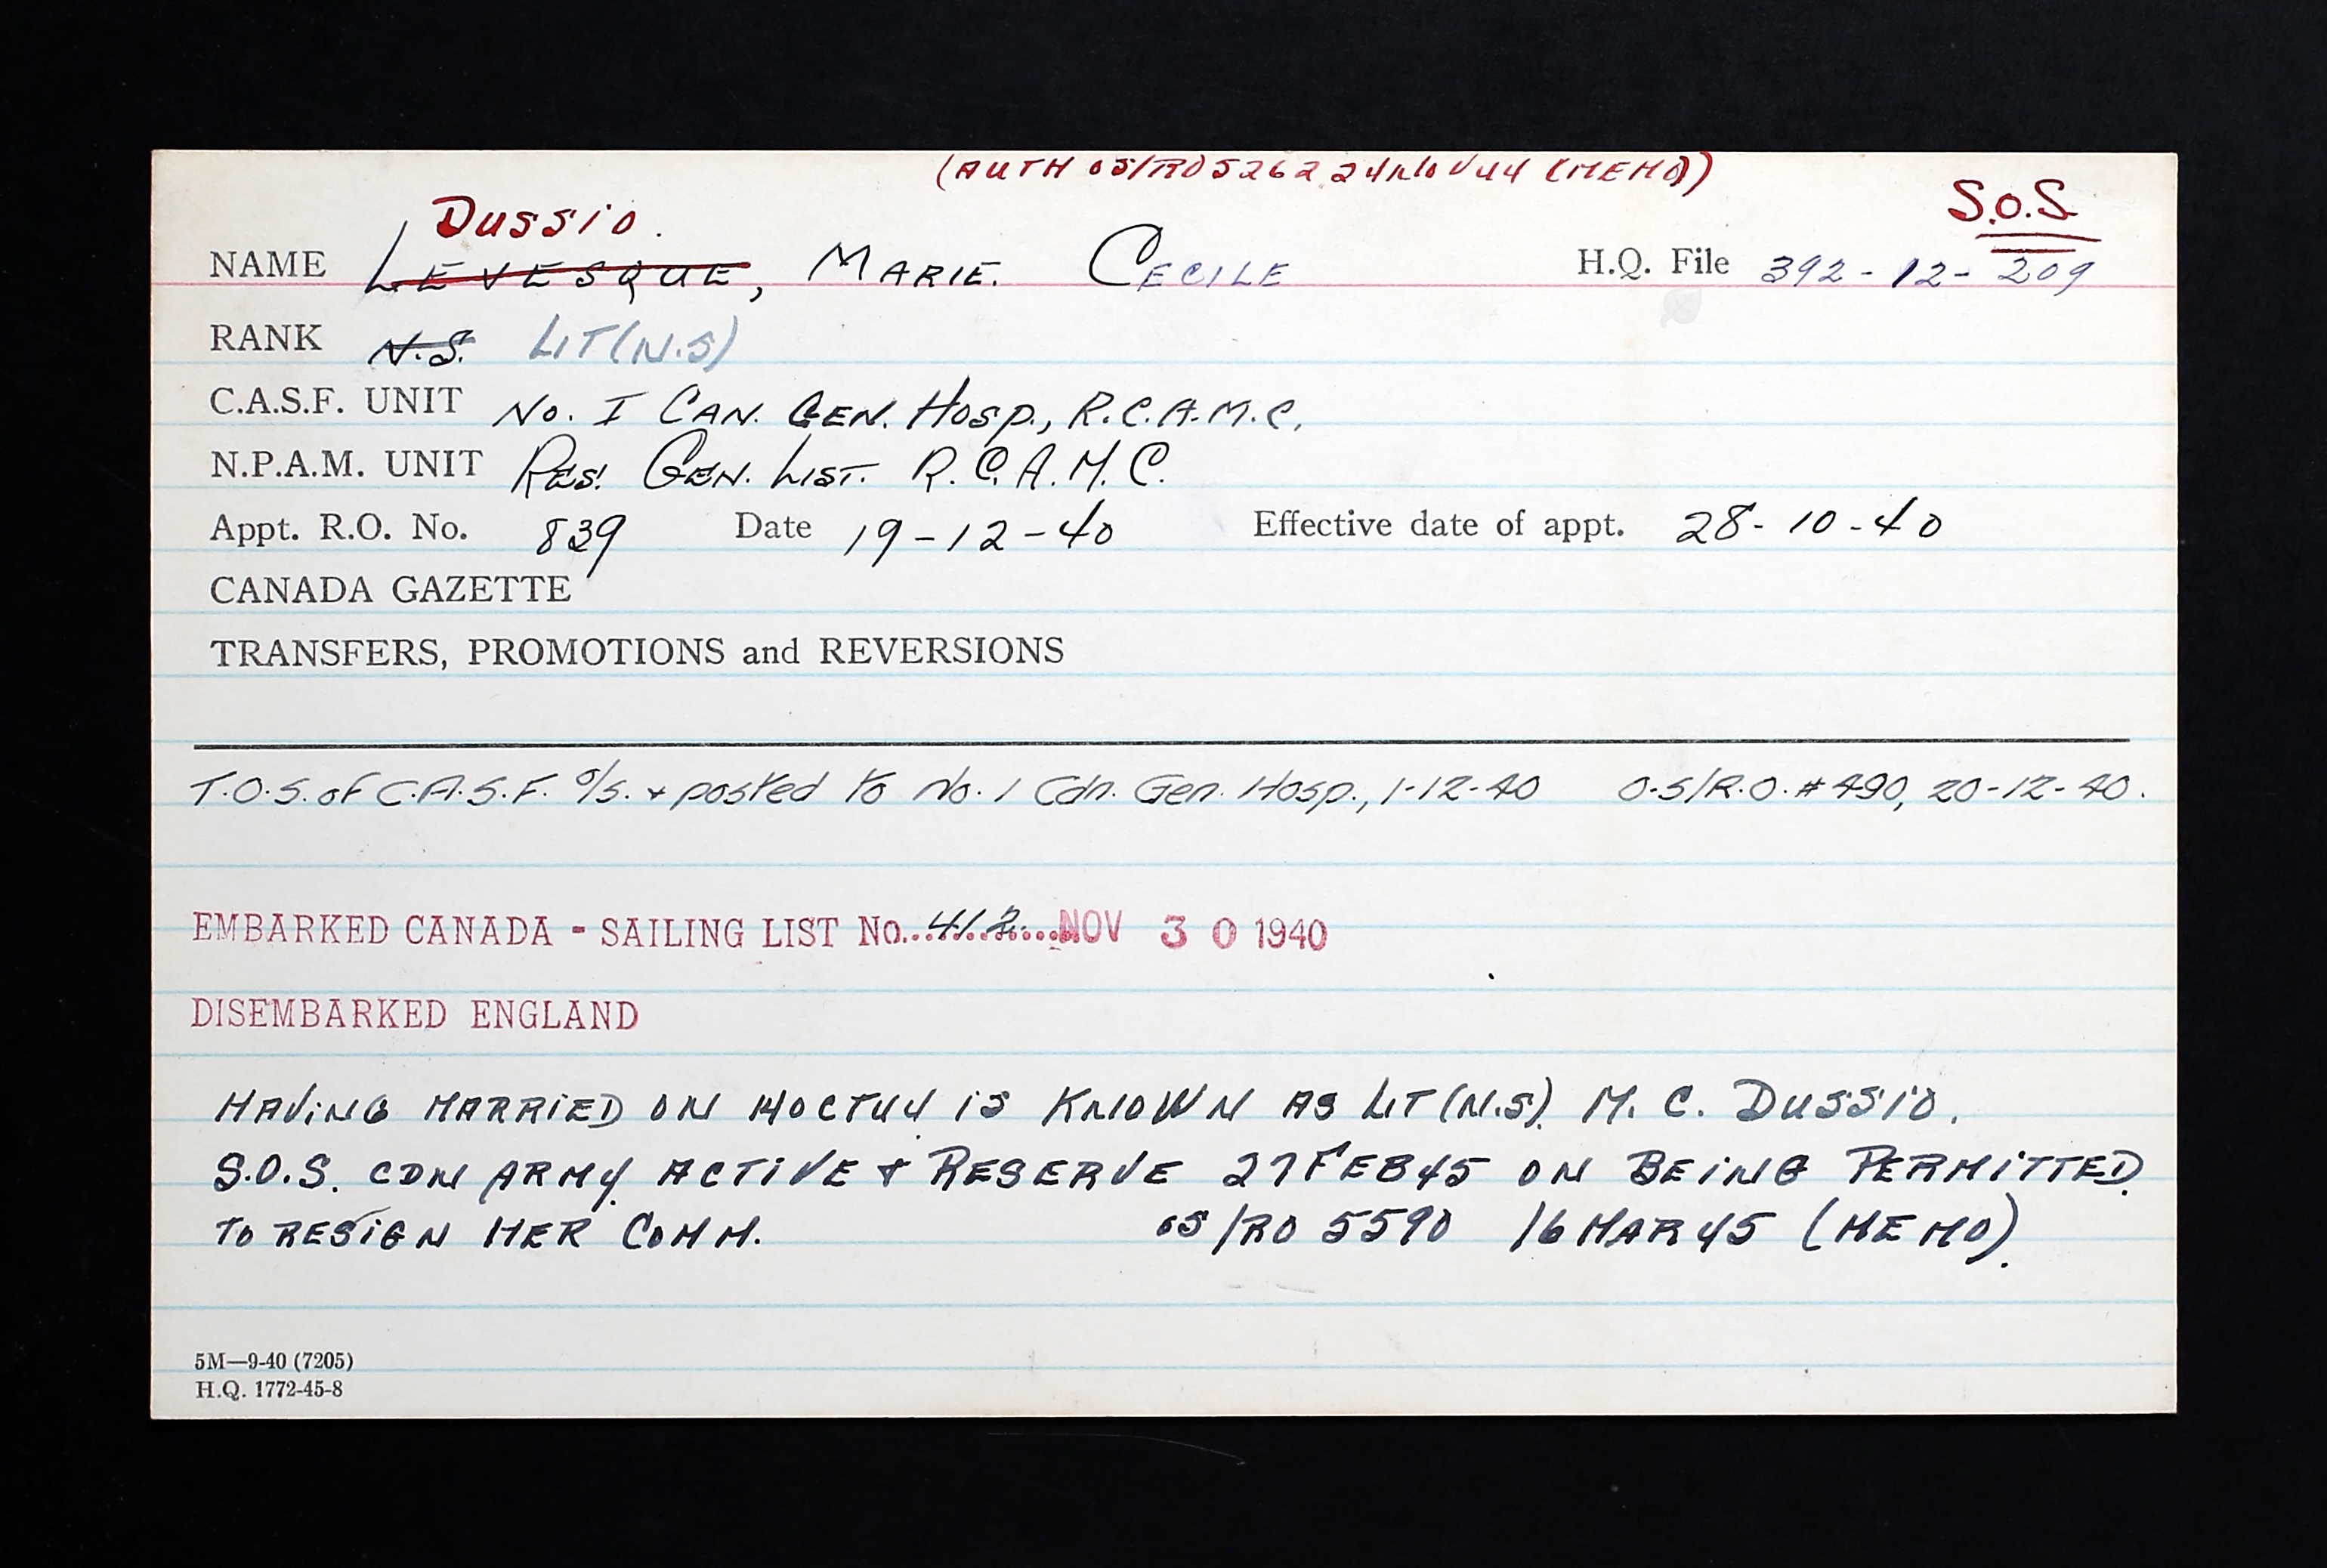 (AUTH OS/RO5262 24NOV44 (MEMO))
S.O.S
Dussio.
NAME LEVESQUE, MARIE. CECILE H.Q. File 392-12-209
RANK N.S. LIT(N.S)
C.A.S.F. UNIT No. I CAN. GEN. HOSP., R.C.A.M.C.
N.P.A.M. UNIT RES. GEN. LIST. R.C.A.M.C.
Appt. R.O. No. 839 Date 19-12-40 Effective date of appt. 28-10-40
CANADA GAZETTE
TRANSFERS, PROMOTIONS and REVERSIONS
T.O.S. of C.A.S.F. o/s. + posted to No. 1 Cdn. Gen. Hosp., 1-12-40 O.S/R.O. #490, 20-12-40.
EMBARKED CANADA - SAILING LIST No. 412 NOV 30 1940
DISEMBARKED ENGLAND
HAVING MARRIED ON 14OCT44 IS KNOWN AS LIT(N.S). M. C. DUSSIO.
S.O.S. CDN ARMY ACTIVE + RESERVE 27FEB45 ON BEING PERMITTED
TO RESIGN HER COMM. OS/RO 5590 16MAR45 (MEMO).
5M—9-40 (7205)
H.Q. 1772-45-8